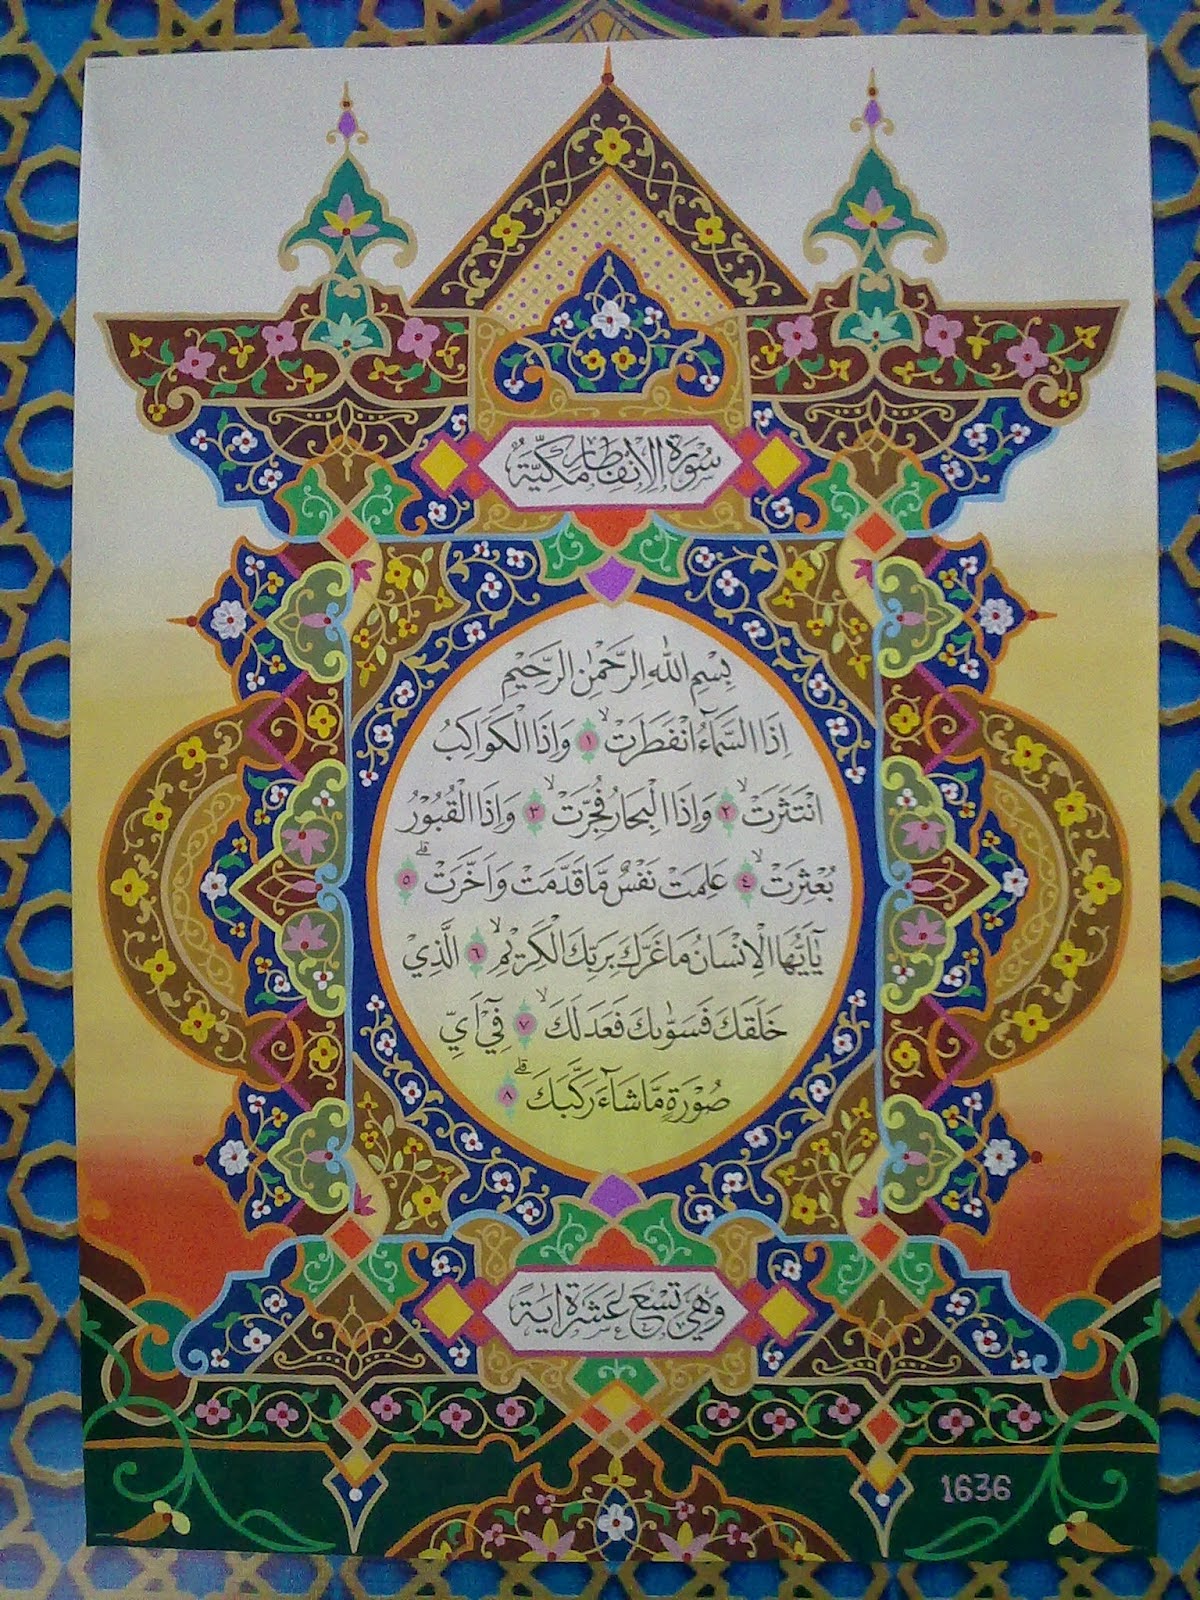 سُوْرَةُ الْاِنْفِطَارِ مَكِّيَّةٌ
بِسْمِ اللهِ الرَّحْمٰنِ الرَّحِيْمِ
اِذَا السَّمَاۤءُ انْفَطَرَتْۙ ١ وَاِذَا الْكَوَاكِبُ
انْتَثَرَتْۙ ٢ وَاِذَا الْبِحَارُ فُجِّرَتْۙ ٣ وَاِذَا الْقُبُوْرُ
بُعْثِرَتْۙ ٤ عَلِمَتْ نَفْسٌ مَّا قَدَّمَتْ وَاَخَّرَتْۗ ٥
يٰٓاَيُّهَا الْاِنْسَانُ مَا غَرَّكَ بِرَبِّكَ الْكَرِيْمِۙ ٦ الَّذِيْ
خَلَقَكَ فَسَوّٰىكَ فَعَدَلَكَۙ ٧ فِيْٓ اَيِّ
صُوْرَةٍ مَّا شَاۤءَ رَكَّبَكَۗ ٨
وَهِيَ تِسْعَ عَشَرَةَ اٰيَةً
1636